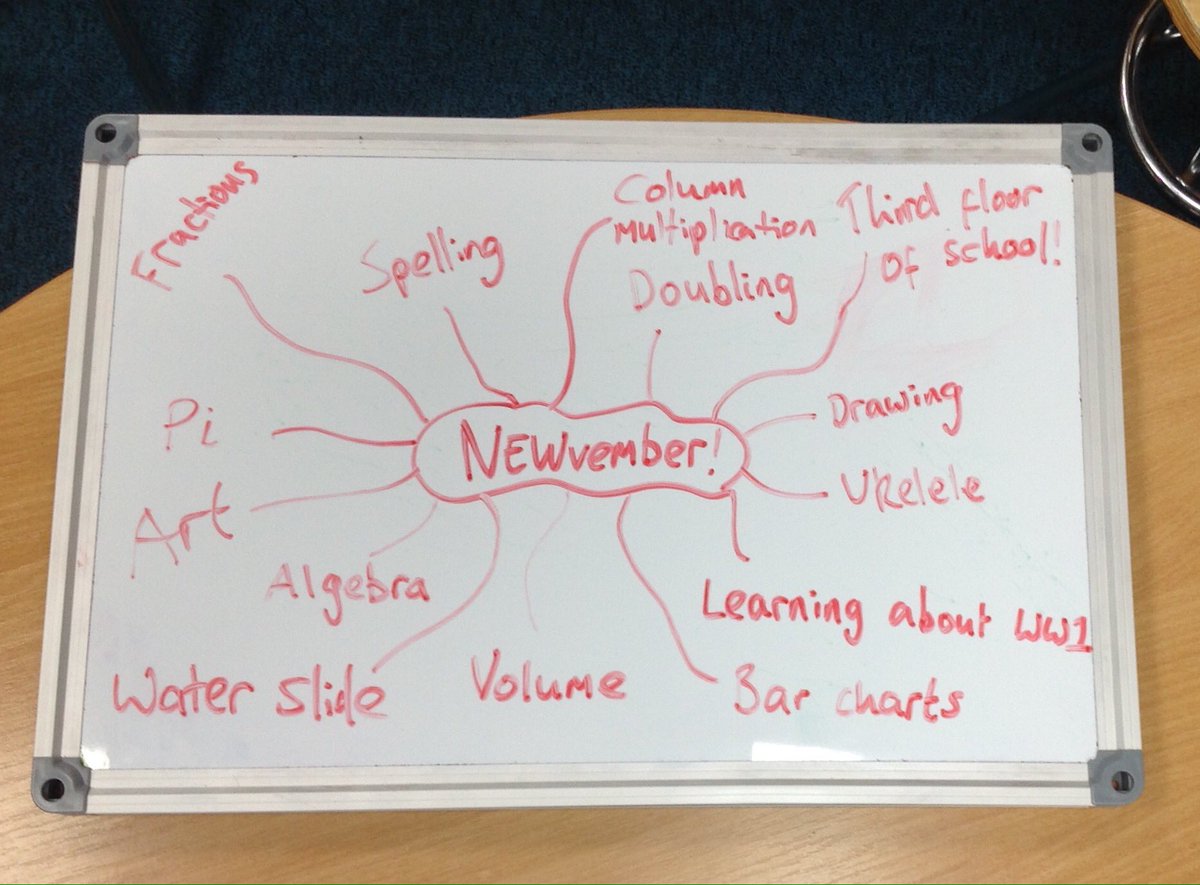 Fractions
Spelling
Column
Multiplication
Doubling
Third floor
of school!
Pi
NEWvember!
Drawing
Ukelele
Art
Algebra
Learning about WW1
Water Slide
Volume
Bar charts